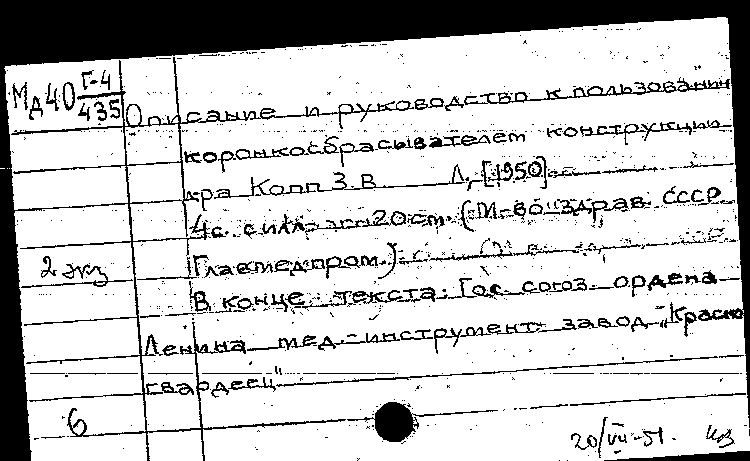 Мд40 Г-4/435
Описание и руководство к пользованию
коронкосбрасывателем конструкции
д-ра Копп З.В. Л, [1950]
4с. с илл. 20 см. (М-во здрав. СССР
Главмедпром.)
2 экз
В конце текста: Гос. союз. ордена
Ленина мед.-инструмент. завод „Красно
гвардеец"
6
20/VII-51.